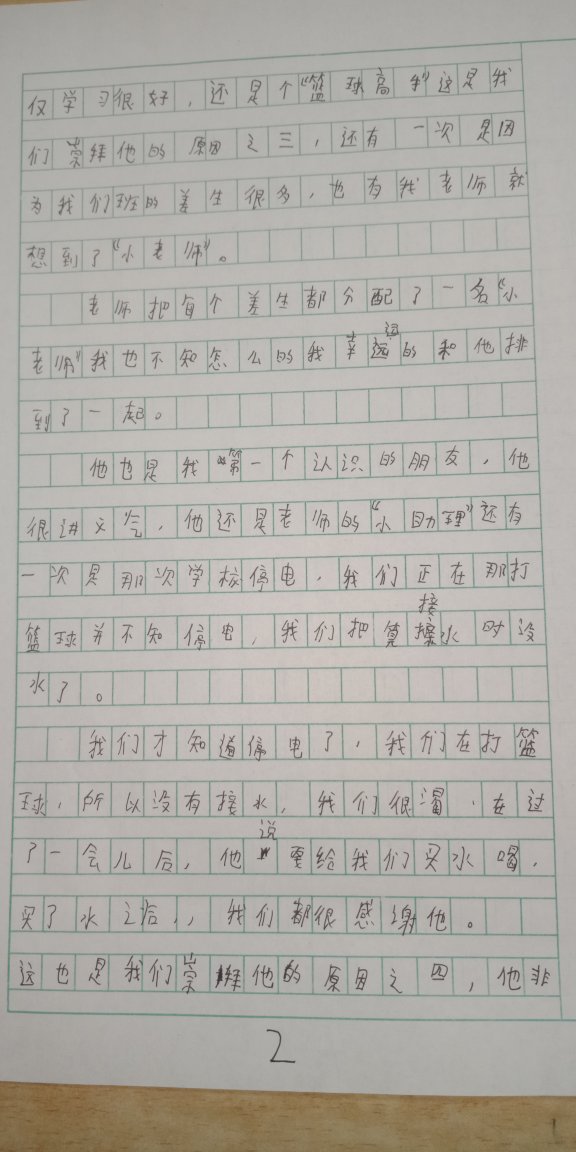 仅学习很好，还是个“篮球高手”这是我
们崇拜他的原因之三，还有一次是因
为我们班的差生很多，也有我老师就
想到了“小老师”。
老师把每个差生都分配了一名“小
老师”我也不知怎么的我幸运的和他排
到了一起。
他也是我第一个认识的朋友，他
很讲义气，他还是老师的“小助理”还有
一次是那次学校停电，我们正在那打
篮球并不知停电，我们把算接水时没
水了。
我们才知道停电了，我们在打篮
球，所以没有接水，我们很渴，在过
了一会儿后，他说要给我们买水喝，
买了水之后，，我们都很感谢他。
这也是我们崇拜他的原因之四，他非
2